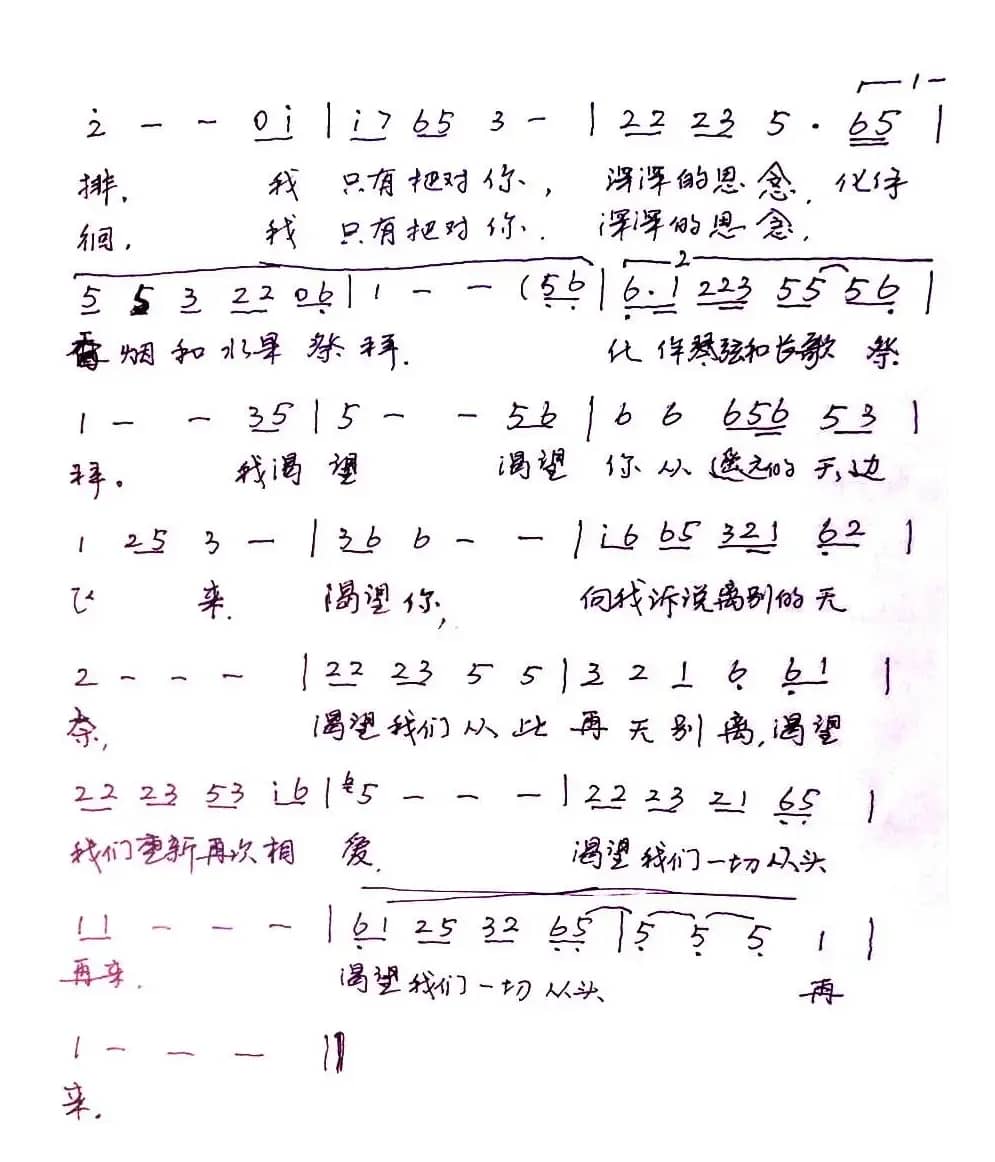 i - - 0 i | i 7 6 5 3 - | 2 2 2 3 5 · 6 5 |
1
排， 我 只有把对你， 深深的思念， 化作
徊， 我 只有把对你. 深深的思念，
5 5 3 2 2 0 6 | 1 - - (5 6 | 6 · 1 2 2 3 5 5 5 6 |
2
香烟和水果祭拜. 化作琴弦和长歌祭
1 - - 3 5 | 5 - - 5 6 | 6 6 6 5 6 5 3 |
拜。 我渴望 渴望 你从遥远的天边
1 2 5 3 - | 3 6 6 - - | i 6 6 5 3 2 1 6 2 |
飞 来. 渴望你， 向我诉说离别的无
2 - - - | 2 2 2 3 5 5 | 3 2 1 6 6 1 |
奈， 渴望我们从此再无别离，渴望
2 2 2 3 5 3 i 6 | 5 - - - | 2 2 2 3 2 1 6 5 |
我们重新再次相 爱. 渴望我们一切从头
1 1 - - - | 6 1 2 5 3 2 6 5 | 5 5 5 1 |
再来. 渴望我们一切从头 再
1 - - - ‖
来.